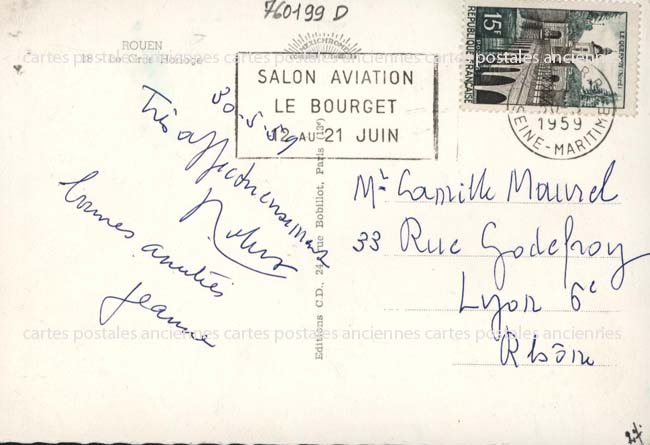 760199 D
ROUEN
18 - Le Gros Horloge
MEXICHROME
SALON AVIATION
LE BOURGET
12 AU 21 JUIN
15F
REPUBLIQUE FRANÇAISE
LE QUESNOY (NORD)
1959
SEINE-MARITIME
30-5-59
Très affectueusement
bonnes amitiés
Jeanne
Editions C.D., 24, rue Bobillot, Paris (13e)
Mr Camille Maurel
33 Rue Godefroy
Lyon 6e
Rhône
cartes postales anciennes cartes postales anciennes cartes postales anciennes